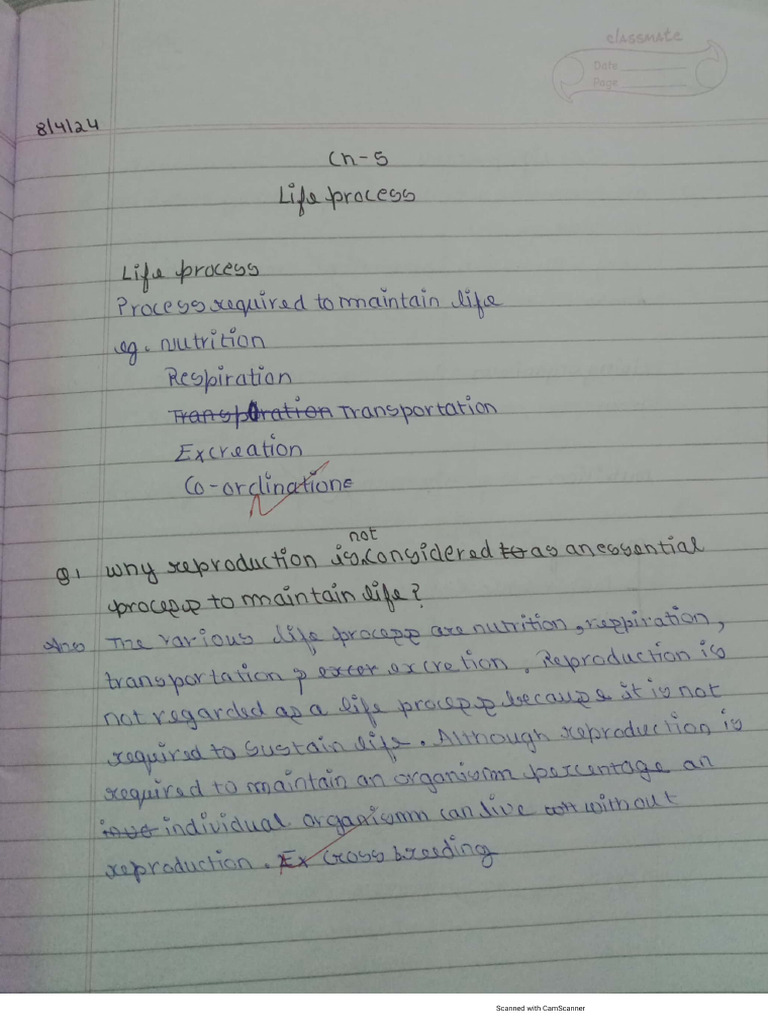 classmate
Date
Page
8/4/24
Ch-5
Life process
Life process
Process required to maintain life
eg. nutrition
Respiration
Transporation Transportation
Excreation
Co-ordinatione
not
Q1 why reproduction is considered to as an essential
process to maintain life?
Ans The various life process are nutrition, respiration,
transportation, excretion. Reproduction is
not regarded as a life process because it is not
required to sustain life. Although reproduction is
required to maintain an organismm percentage an
individual organismm can live without
reproduction. Ex Cross breeding
Scanned with CamScanner